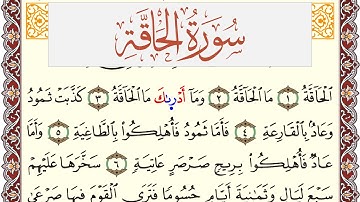 سُورَةُ الْحَاقَّةِ
الْحَاقَّةُ ١ مَا الْحَاقَّةُ ٢ وَمَا أَدْرَىٰكَ مَا الْحَاقَّةُ ٣ كَذَّبَتْ ثَمُودُ
وَعَادٌۢ بِالْقَارِعَةِ ٤ فَأَمَّا ثَمُودُ فَأُهْلِكُوا۟ بِالطَّاغِيَةِ ٥ وَأَمَّا
عَادٌ فَأُهْلِكُوا۟ بِرِيحٍ صَرْصَرٍ عَاتِيَةٍ ٦ سَخَّرَهَا عَلَيْهِمْ
سَبْعَ لَيَالٍ وَثَمَٰنِيَةَ أَيَّامٍ حُسُومًا فَتَرَى الْقَوْمَ فِيهَا صَرْعَىٰ